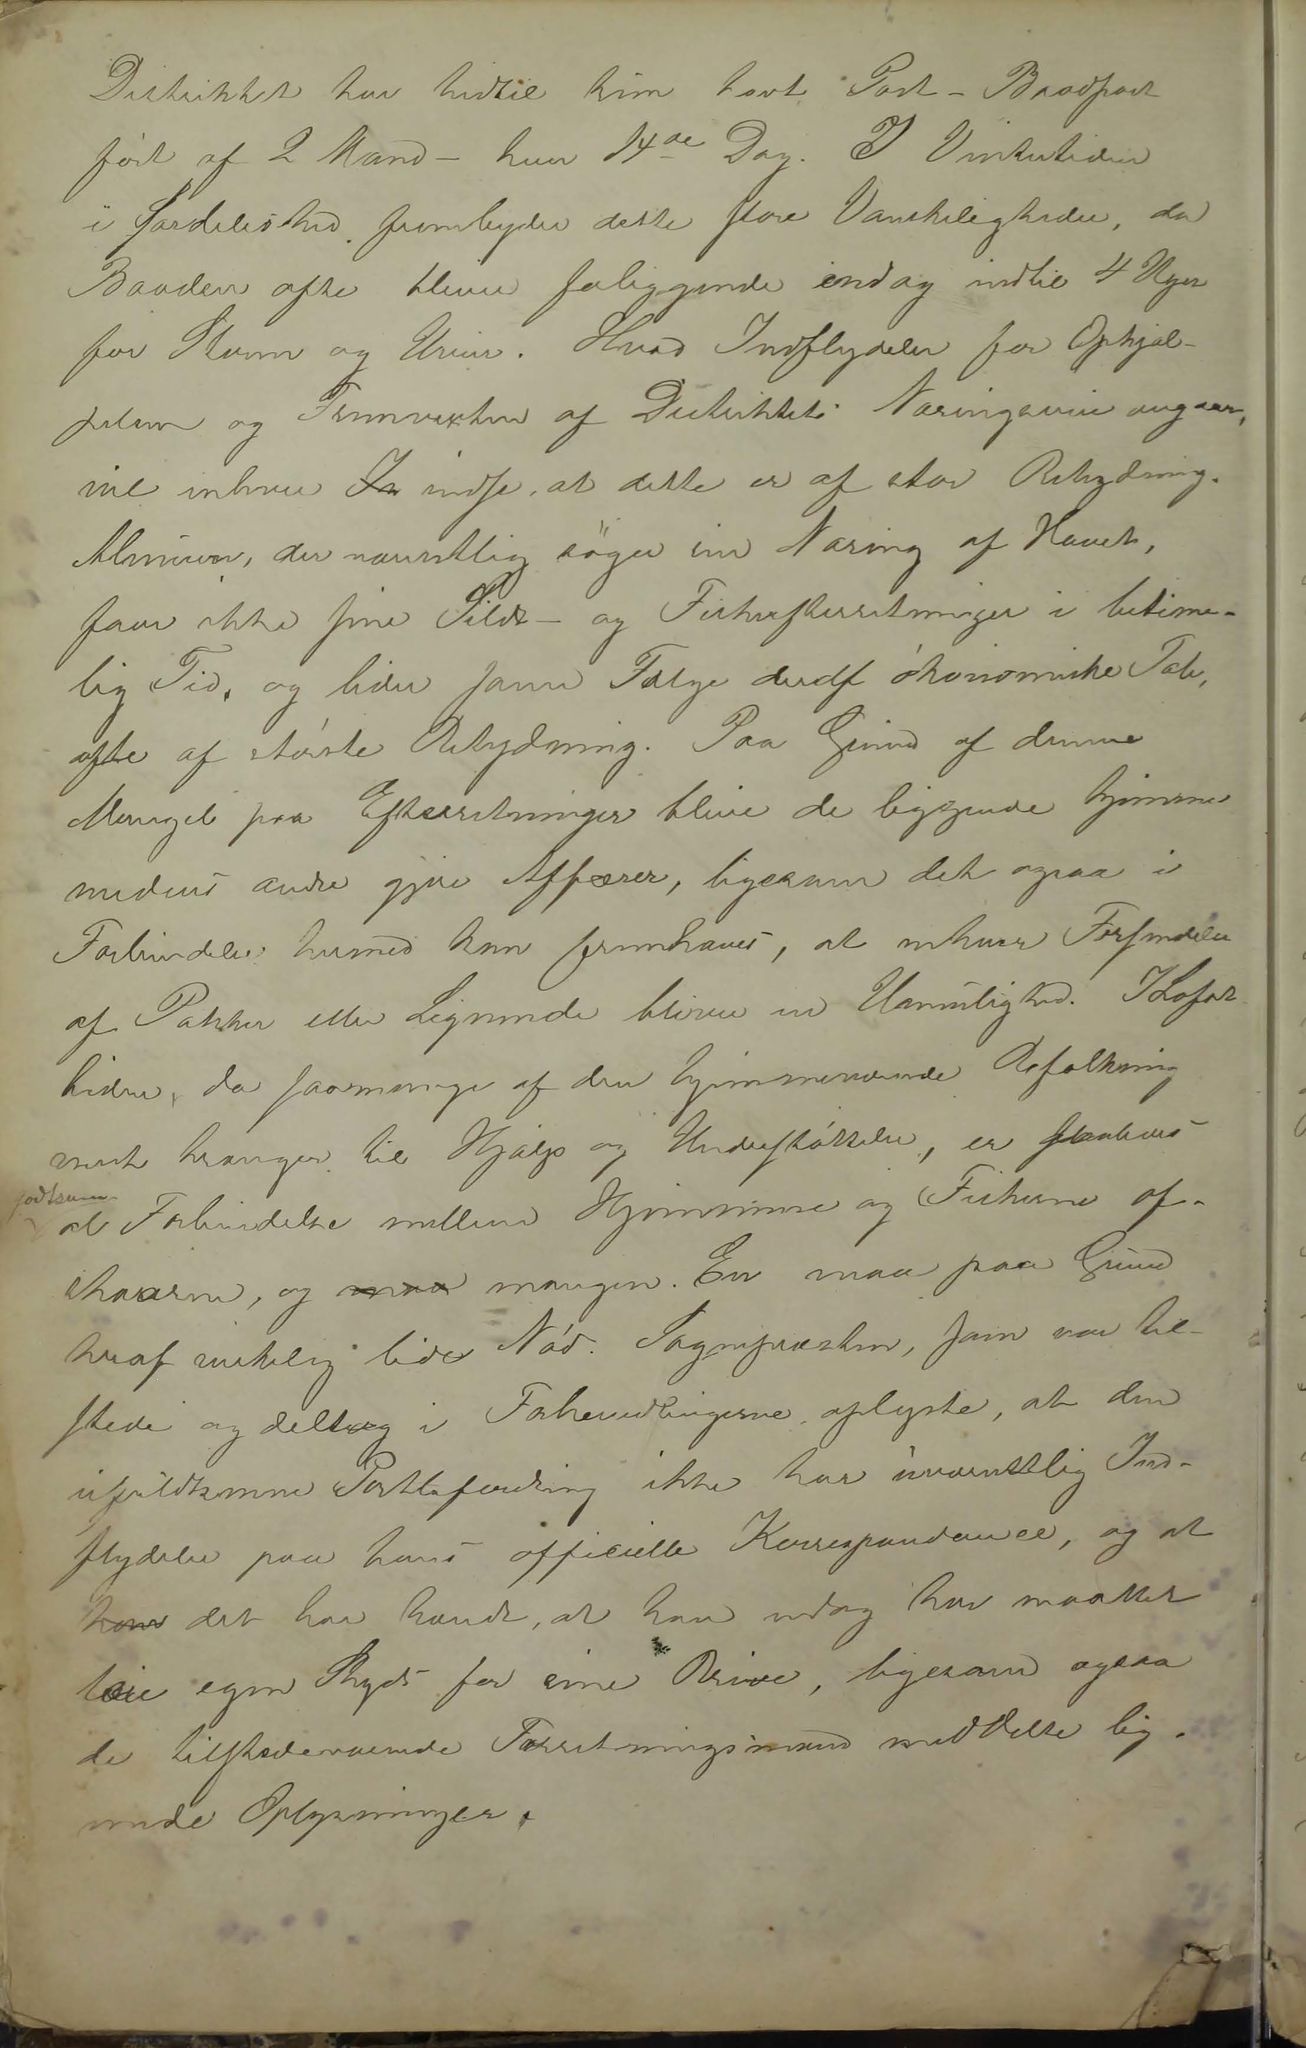 Distriktet har hidtil kun havt Post - Baadpost
ført af 2 Mand - hver 14de Dag. I Vintertiden
i Særdeleshed frembyder dette store Vanskeligheder, da
Baaden ofte bliver forliggende endog indtil 4 Uger
for Storm og Uveir. Hvad Indflydelse for Ophjæl-
pelsen og Fremvæxten af Distriktets Næringsveie angaar,
vil enhver indse, at dette er af stor Betydning.
Almuen, der væsentlig søger sin Næring af Havet,
faar ikke sine Silde- og Fiskeefterretninger i betime-
lig Tid, og lider som Følge deraf økonomiske Tab,
ofte af største Betydning. Paa Grund af denne
Mangel paa Efterretninger blive de liggende hjemme
medens andre gjøre Affærer, ligesom det ogsaa i
Forbindelse hermed kan fremhæves, at enhver Forsendelse
af Pakker eller Lignende bliver en Umulighed. I Lofot
tiden, da saamange af den hjemmeværende Befolkning
mest trænger til Hjælp og Understøttelse, er
al Forbindelse mellem Hjemmene og Fiskerne af-
skaaren, og mangen En maa paa Grund
heraf virkelig lide Nød. Sognepræsten, som var til-
stede og deltog i Forhandlingerne oplyste, at den
ufuldkomne Postbefordring ikke har uvæsentlig Ind-
flydelse paa hans officielle Korrespondance, og at
det har hændt, at han endog har maattet
leie egen Skyds for sine Breve, ligesom ogsaa
de tilstedeværende Forretningsmænd meddelte lig-
nende Oplysninger.